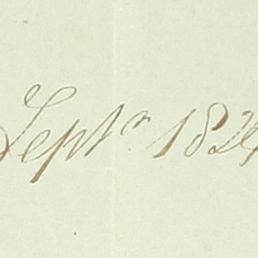 Septr 182